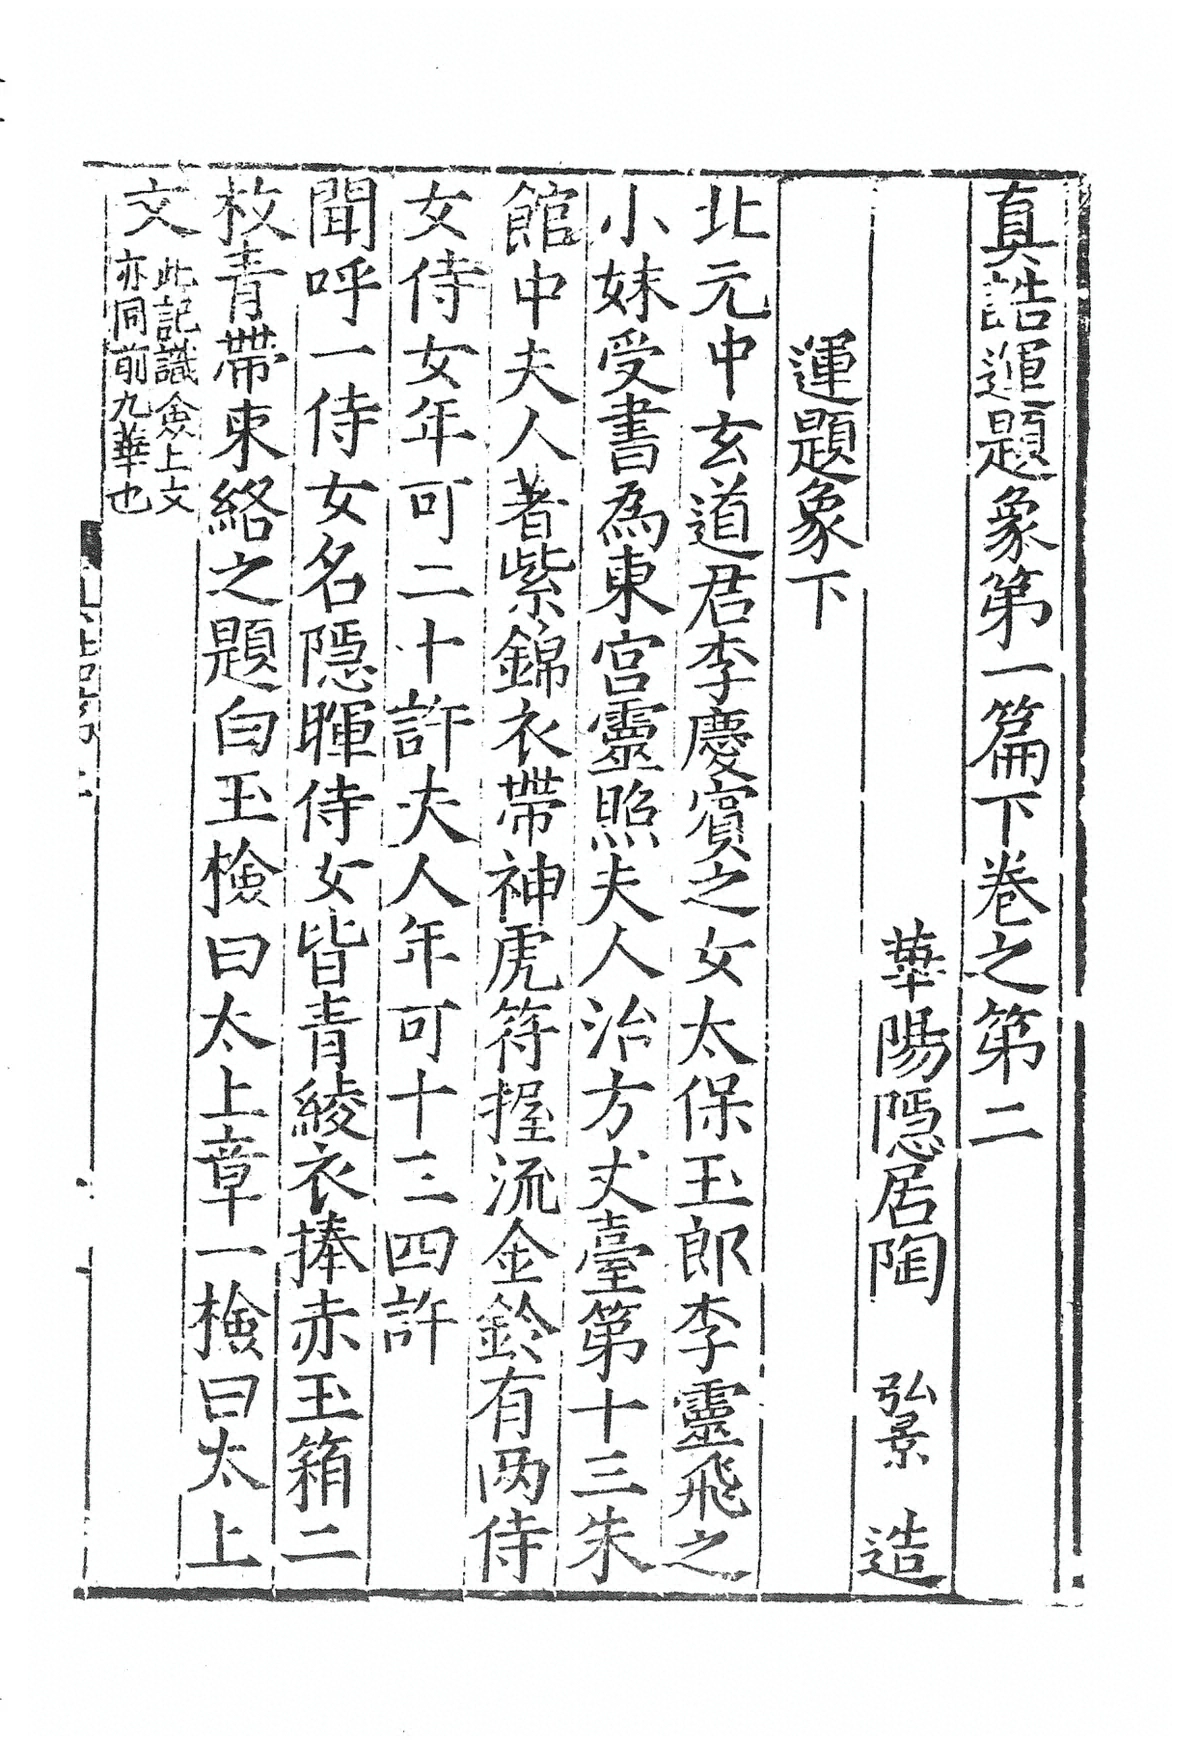 真誥運題象第一篇下卷之第二
華陽隱居陶 弘景 造
運題象下
北元中玄道君李慶賓之女太保玉郎李靈飛之
小妹受書爲東宮靈照夫人治方丈臺第十三朱
館中夫人著紫錦衣帶神虎符握流金鈴有兩侍
女侍女年可二十許夫人年可十三四許
聞呼一侍女名隱暉侍女皆青綾衣捧赤玉箱二
枚青帶束絡之題白玉檢曰太上章一檢曰太上
文
此記識僉上文
亦同前九華也